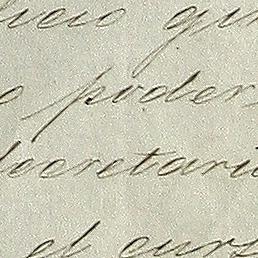 icio gu
o poder
Secretari
el curs